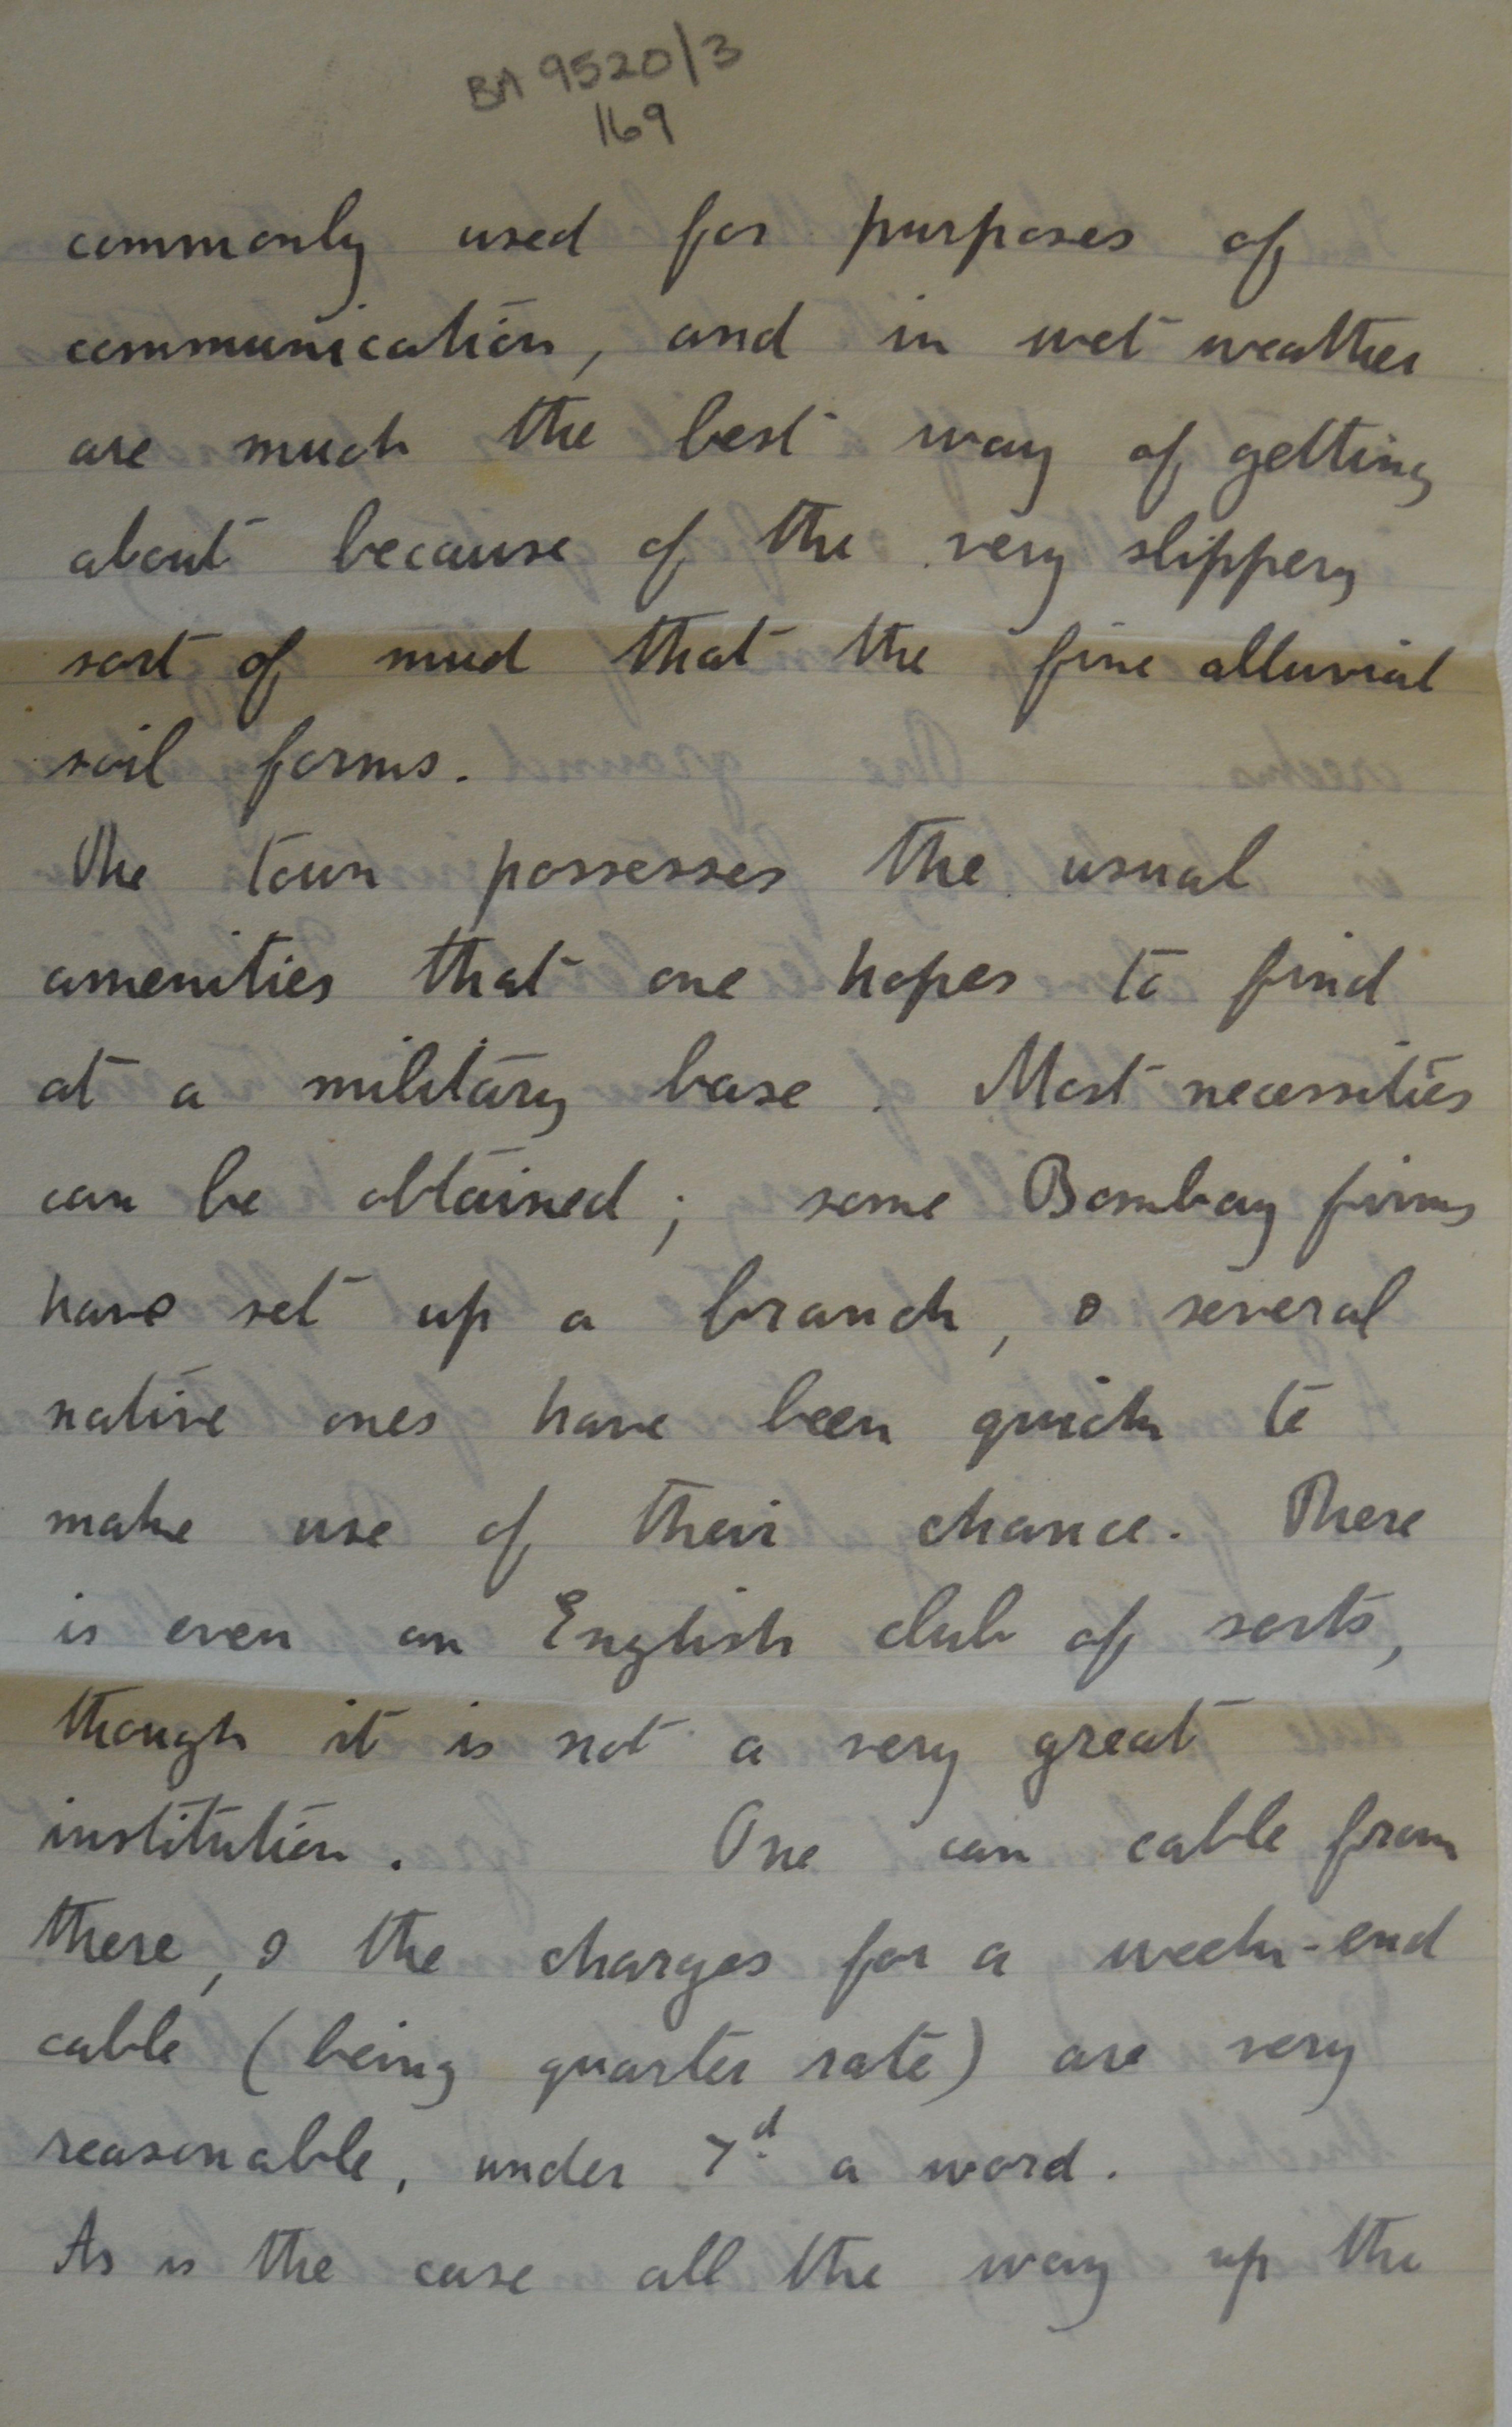 BA 9520/3
169
commonly used for purposes of
communication, and in wet weather
are much the best way of getting
about because of the very slippery
sort of mud that the fine alluvial
soil forms.
The town possesses the usual
amenities that one hopes to find
at a military base. Most necessities
can be obtained; some Bombay firms
have set up a branch, & several
native ones have been quick to
make use of their chance. There
is even an English club of sorts,
though it is not a very great
institution. One can cable from
there, & the charges for a week-end
cable (being quarter rate) are very
reasonable, under 7d a word.
As is the case all the way up the